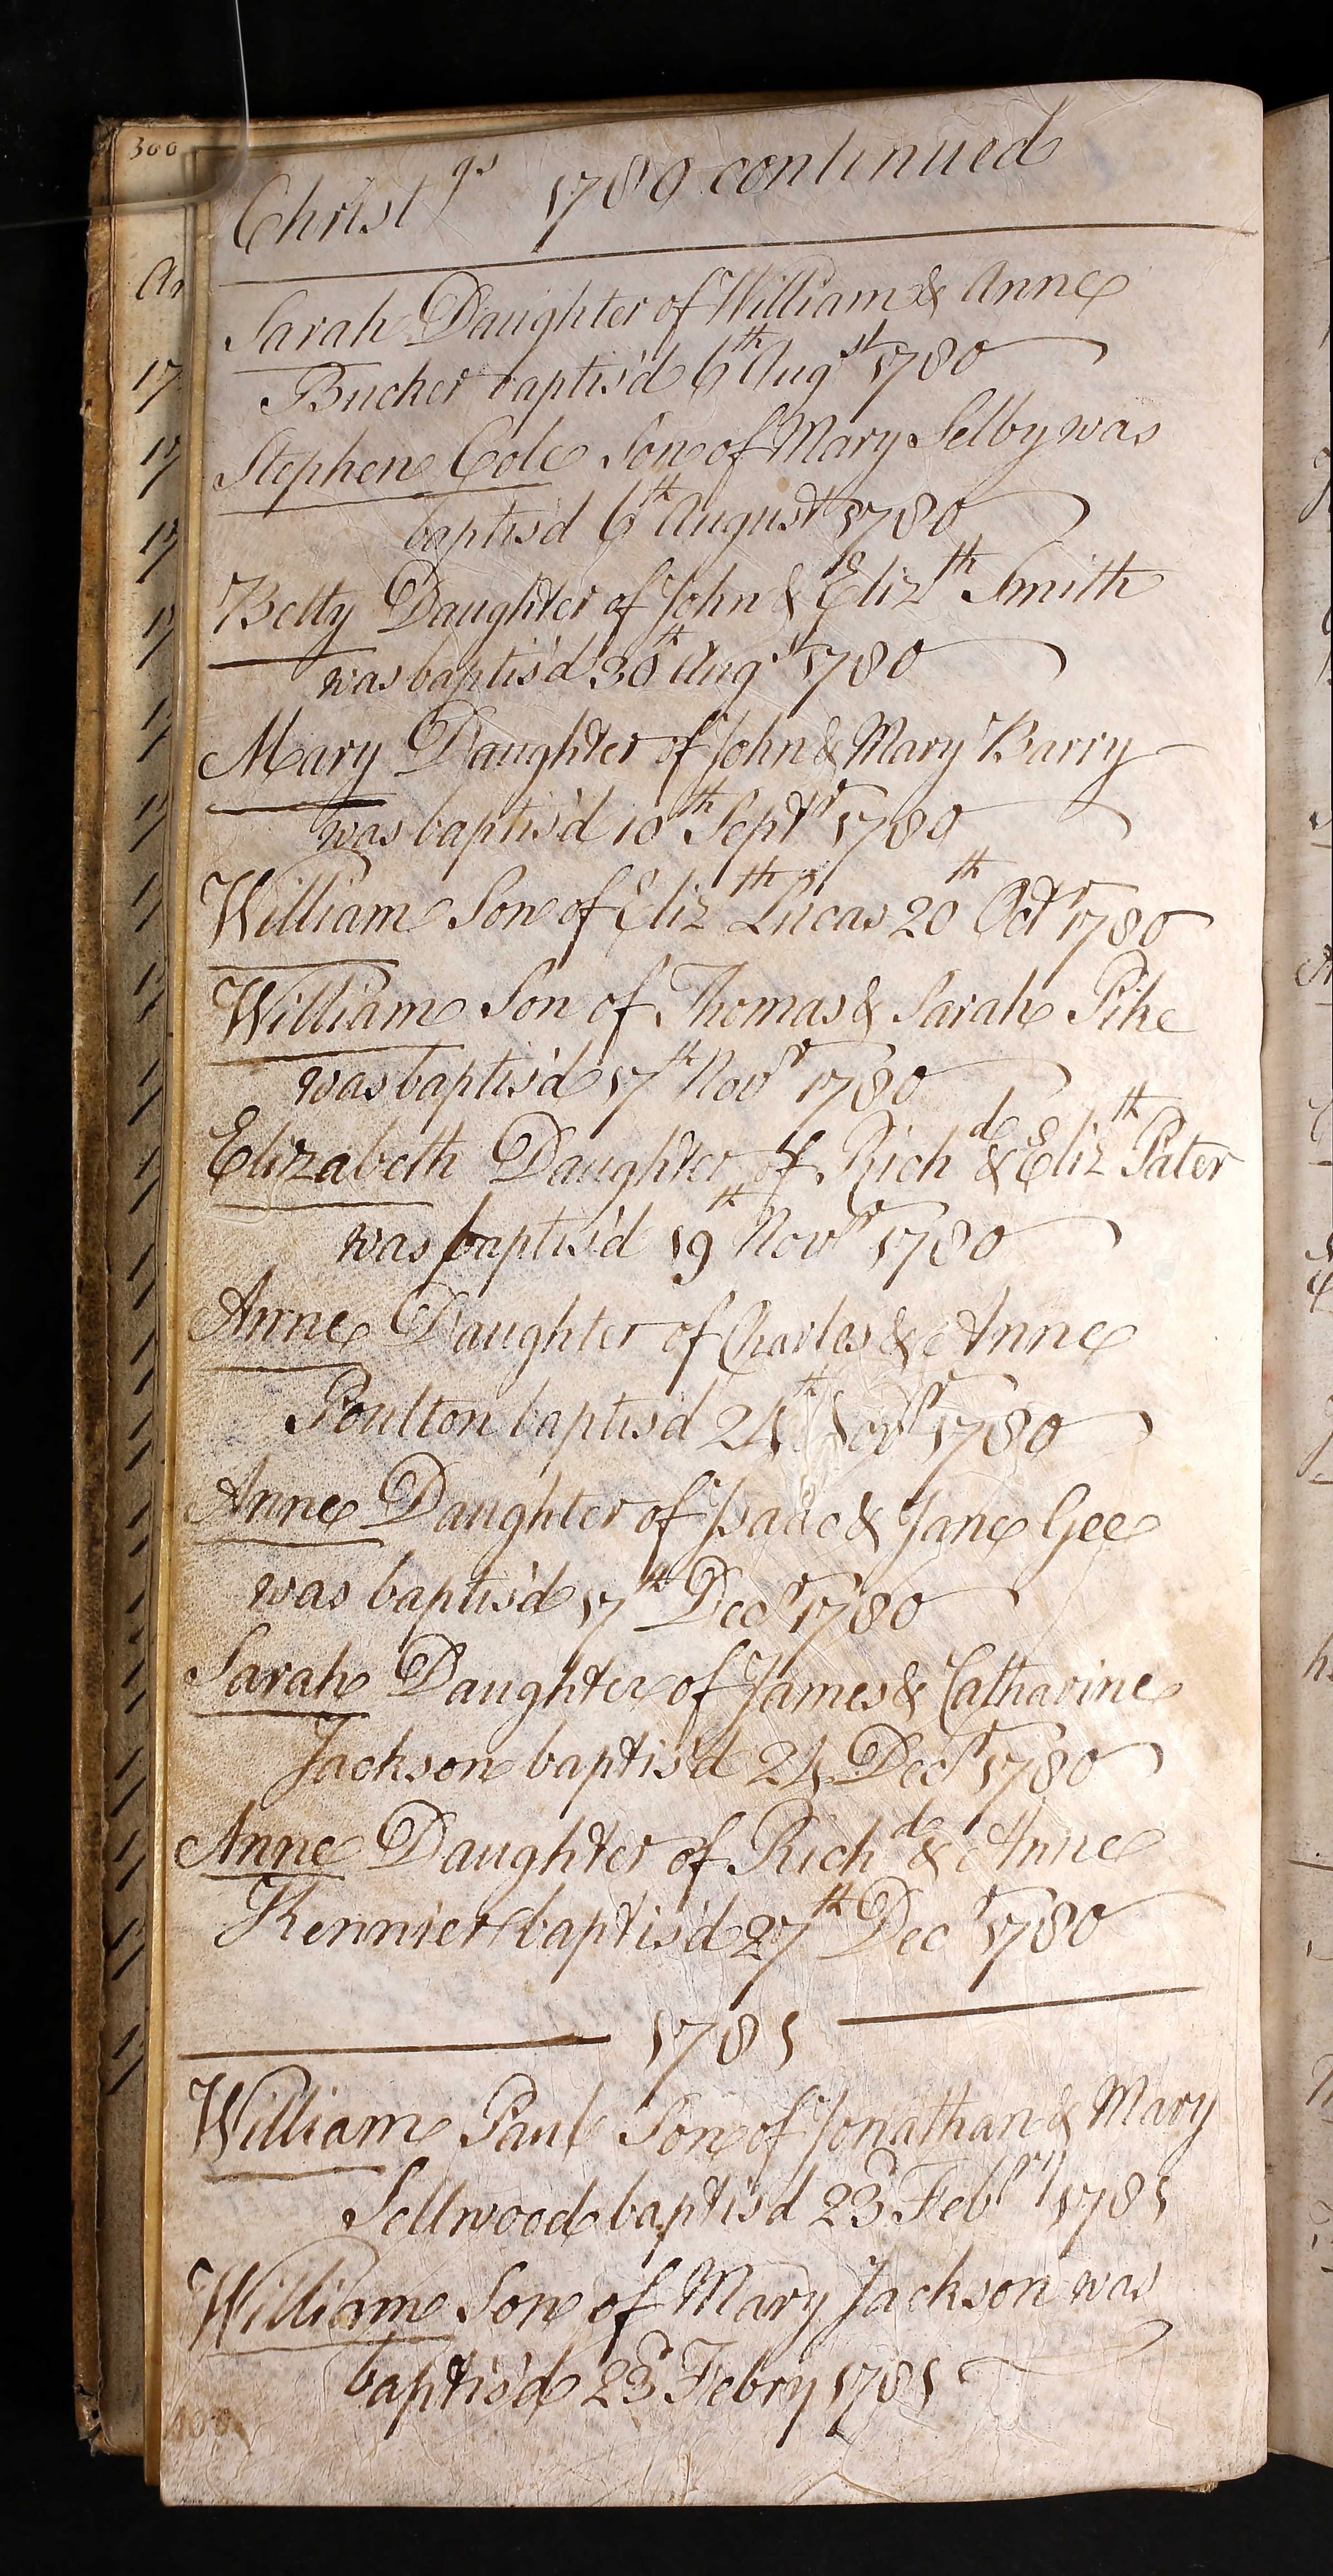 300
Christgs 1780 continued
Sarah Daughter of William & Anne
Bucher baptis'd 6th Augst 1780
Stephen Cole Son of Mary Selby was
baptis'd 6th August 1780
Betty Daughter of John & Elizth Smith
was baptis'd 30th Augt 1780
Mary Daughter of John & Mary Barry
was baptis'd 10th Septr 1780
William Son of Elizth Lucas 20th Octr 1780
William Son of Thomas & Sarah Pike
was baptis'd 17th Novr 1780
Elizabeth Daughter of Richd & Elizth Pater
was baptis'd 19th Novr 1780
Anne Daughter of Charles & Anne
Poulton baptis'd 24th Novr 1780
Anne Daughter of Isaac & Jane Gee
was baptis'd 17th Decr 1780
Sarah Daughter of James & Catharine
Jackson baptis'd 24 Decr 1780
Anne Daughter of Richd & Anne
Kennier baptis'd 27th Decr 1780
1781
William Paul Son of Jonathan & Mary
Sellwood baptis'd 23d Febry 1781
William Son of Mary Jackson was
baptis'd 23d Febry 1781